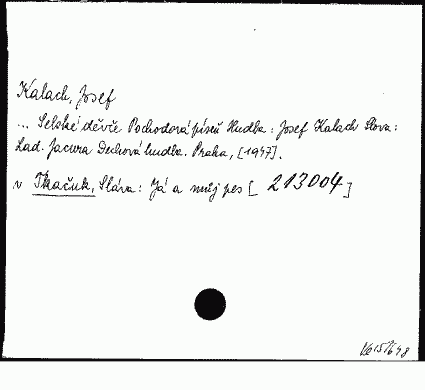 Kalach, Josef
... Selské děvče Pochodová píseň Hudba: Josef Kalach Slova:
Lad. Jacura Dechová hudba. Praha, [1947].
v Tkačuk, Sláva: Já a můj pes [213004]